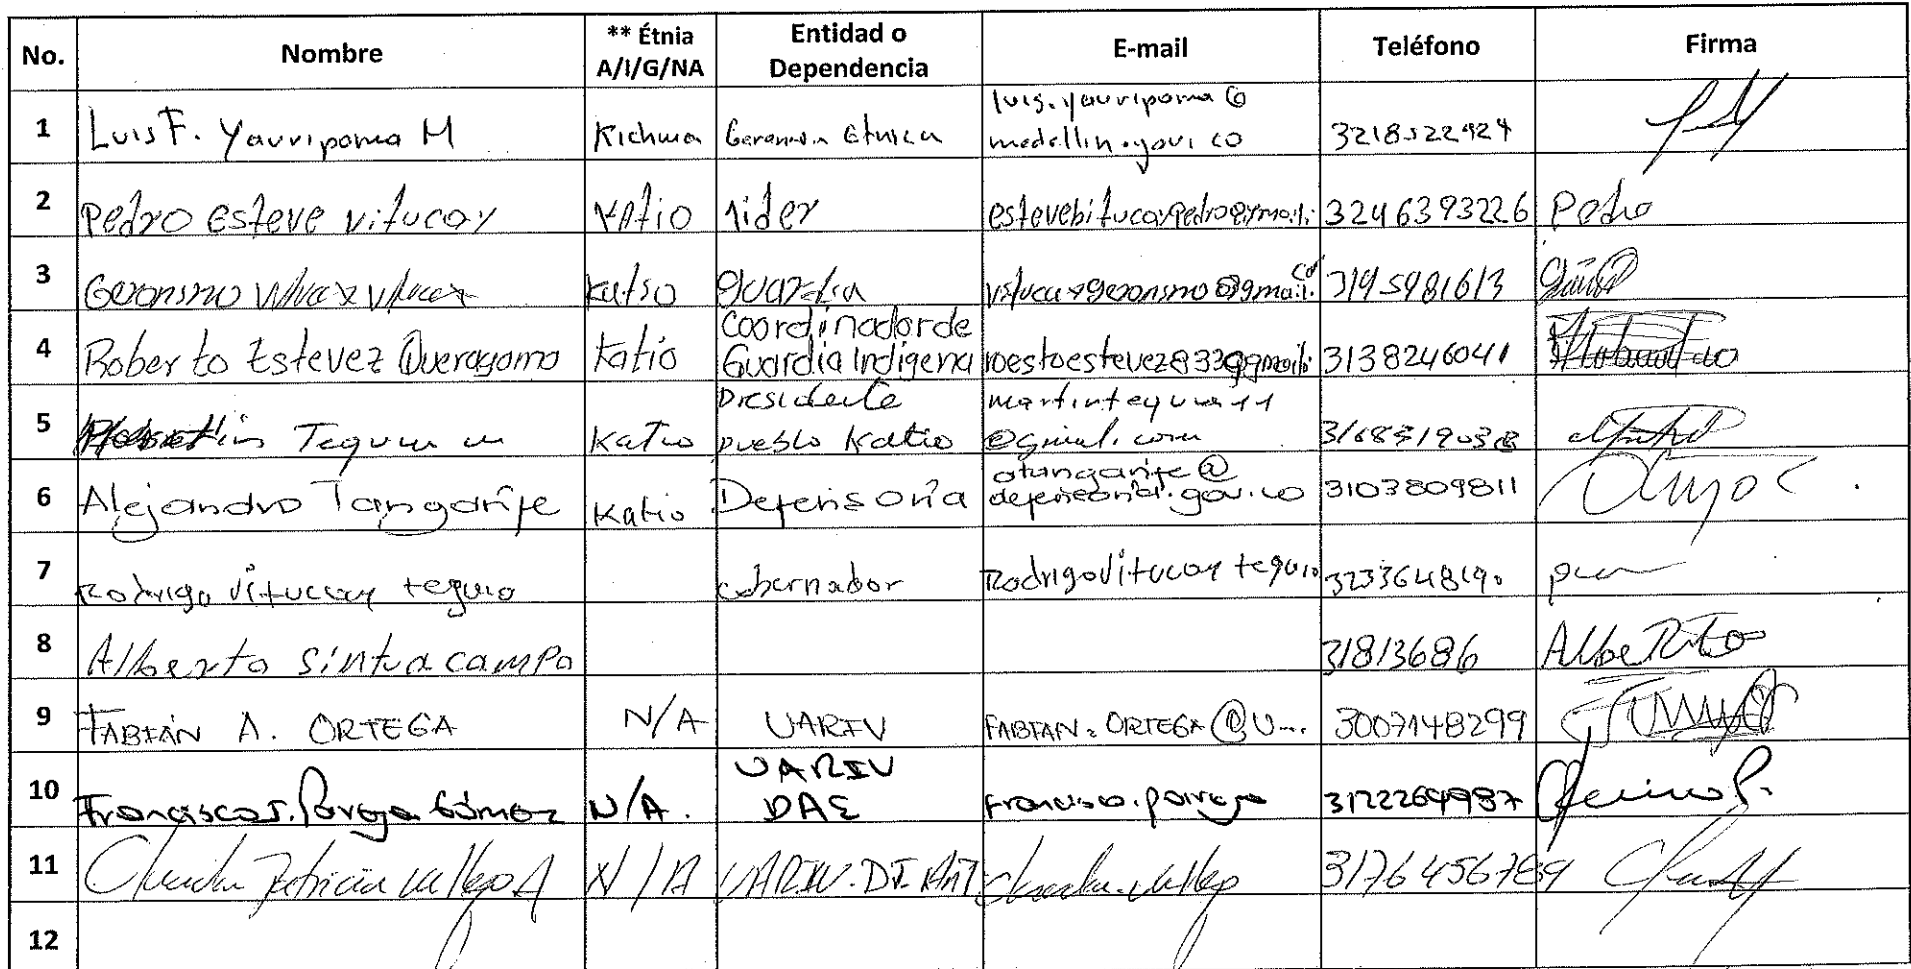 No. Nombre ** Étnia A/I/G/NA Entidad o Dependencia E-mail Teléfono Firma
1 Luis F. Yauripoma M Kichwa Gerencia Etnica luis.yauripoma@ medellin.gov.co 3218522924
2 Pedro esteve vitucay Katio lider estevebitucaypedro@gmail. 3246393226 Pedro
3 Geronsmo Katso guardia gmail. 3195981613
4 Roberto Estevez Queragama Katio Coordinador de Guardia Indigena roestoestevez833@gmail. 3138246041
5 Tequia Katio Presidente pueblo Katio @gmail.com
6 Alejandro Tangarife Katio Defensoria atangarife@ defensoria.gov.co 3103809811
7 Rodrigo Vitucay teguia gobernador Rodrigo Vitucay
8 Alberto sintua campo 31813686 Alberto
9 FABIÁN A. ORTEGA N/A UARIV FABIAN.ORTEGA@U... 3007148299
10 Francisco J. Pareja Gómez N/A. UARIV DAE francisco.pareja 3122269987
11 Claudia Patricia Vallejo A N/A UARIV.DT.ANT claudia.vallejo 3176456789
12